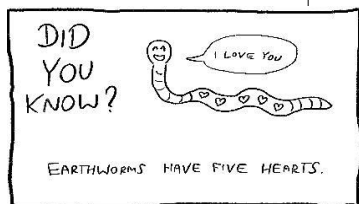 DID
YOU
KNOW?
I LOVE YOU
EARTHWORMS HAVE FIVE HEARTS.